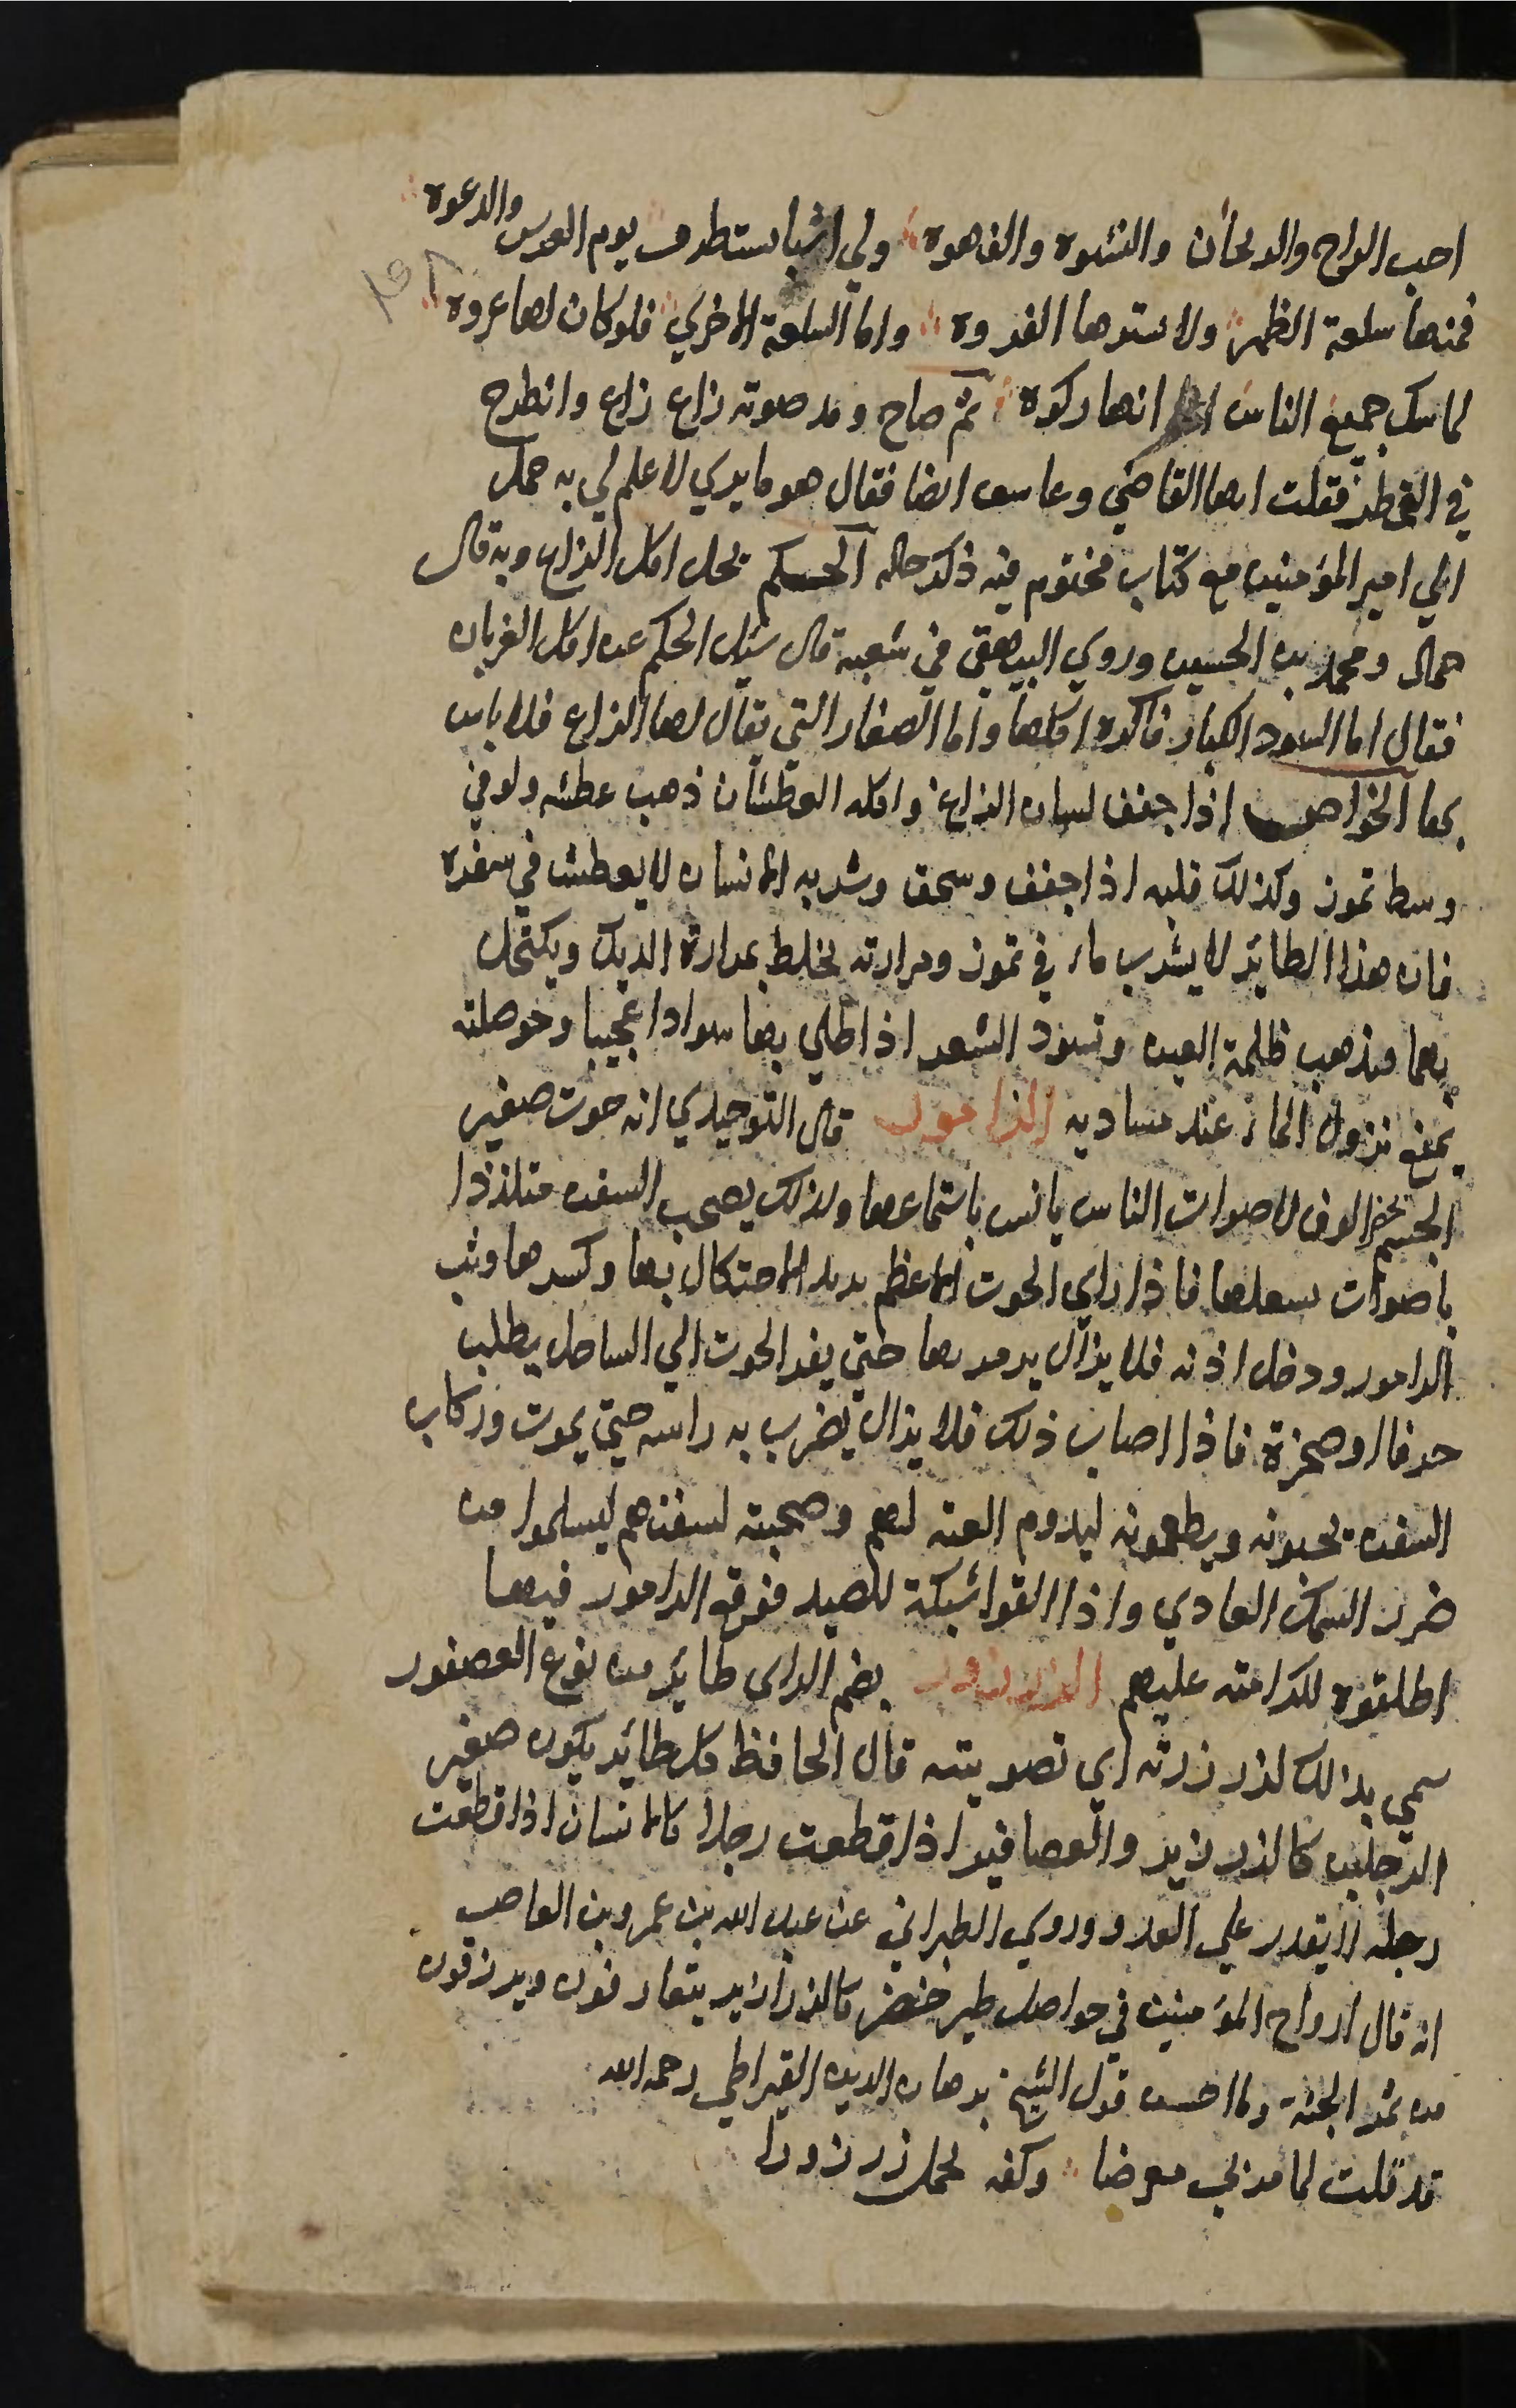 احب الراح والريحان والنشوه والقهوه ولي اشيا ستطرف يوم العرس والدعوه
فمنها سلعة الظهر ولا سترها الفروه واما السلعة الاخري فلو كان لها عروه
لما سك جميع الناس انها ركوه ثم صاح ومد صوته زاغ زاغ وانطرح
في القمطر فقلت ايها القاضي وعاشق ايضا فقال هو ما يري لا علم لي به حمل
الي امير المؤمنين مع كتاب مختوم فيه ذكر حاله الحكم يحل اكل الزاغ وبه قال
حماد ومحمد بن الحسين وروي البيهقي في شعبه قال سئل الحكم عن اكل الغربان
فقال اما السود الكبار فاكره اكلها واما الصغار التي يقال لها الزاغ فلا باس
بها الخواص اذا جفف لسان الزاغ واكله العطشان ذهب عطشه ولو في
وسط تموز وكذلك قلبه اذا جفف وسحق وشربه الانسان لا يعطش في سفره
فان هذا الطائر لا يشرب ماء في تموز ومرارته تخلط بمرارة الديك ويكتحل
بهما فتذهب ظلمة العين وتسود الشعر اذا طلي بها سوادا عجيبا وحوصلته
تمنع نزول الماء عند مباديه الزامور قال التوحيدي انه حوت صغير
الجسم الوف لاصوات الناس يانس باستماعها ولذلك يصحب السفن متلذذا
باصوات اهلها فاذا راي الحوت الاعظم يريد الاحتكاك بها وكسرها وثب
الزامور ودخل اذنه فلا يزال يزمر بها حتي يفر الحوت الي الساحل يطلب
جرفا او صخرة فاذا اصاب ذلك فلا يزال يضرب به راسه حتي يموت وركاب
السفن يحبونه ويطعمونه ليدوم الفته لهم وصحبته لسفنهم ليسلموا من
ضرر السمك العادي واذا القوا شبكة للصيد فوقع الزامور فيها
اطلقوه لكرامته عليهم الزرزور بضم الزاي طائر من نوع العصفور
سمي بذلك لزرزرته اي تصويته قال الحافظ كل طائر يكون صغير
الرجلين كالزرزير والعصافير اذا قطعت رجلا كالانسان اذا قطعت
رجله لا يقدر علي العدو وروي الطبراني عن عبد الله بن عمرو بن العاص
انه قال ارواح المؤمنين في حواصل طير خضر كالزرازير يتعارفون ويرزقون
من ثمر الجنة وما احسن قول الشيخ برهان الدين القيراطي رحمه الله
قد قلت لما مر بي معرضا وكفه تحمل زرزورا